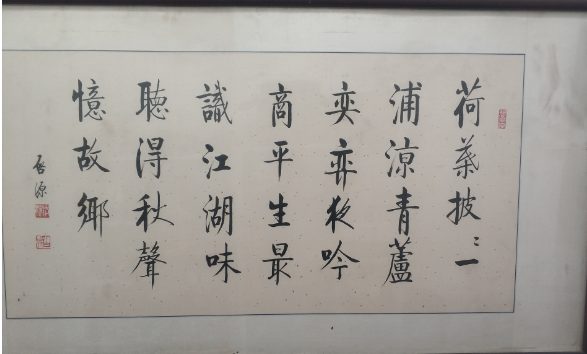 荷葉披〻一
浦涼青蘆
奕弈夜吟
商平生最
識江湖味
聽得秋聲
憶故鄉
源